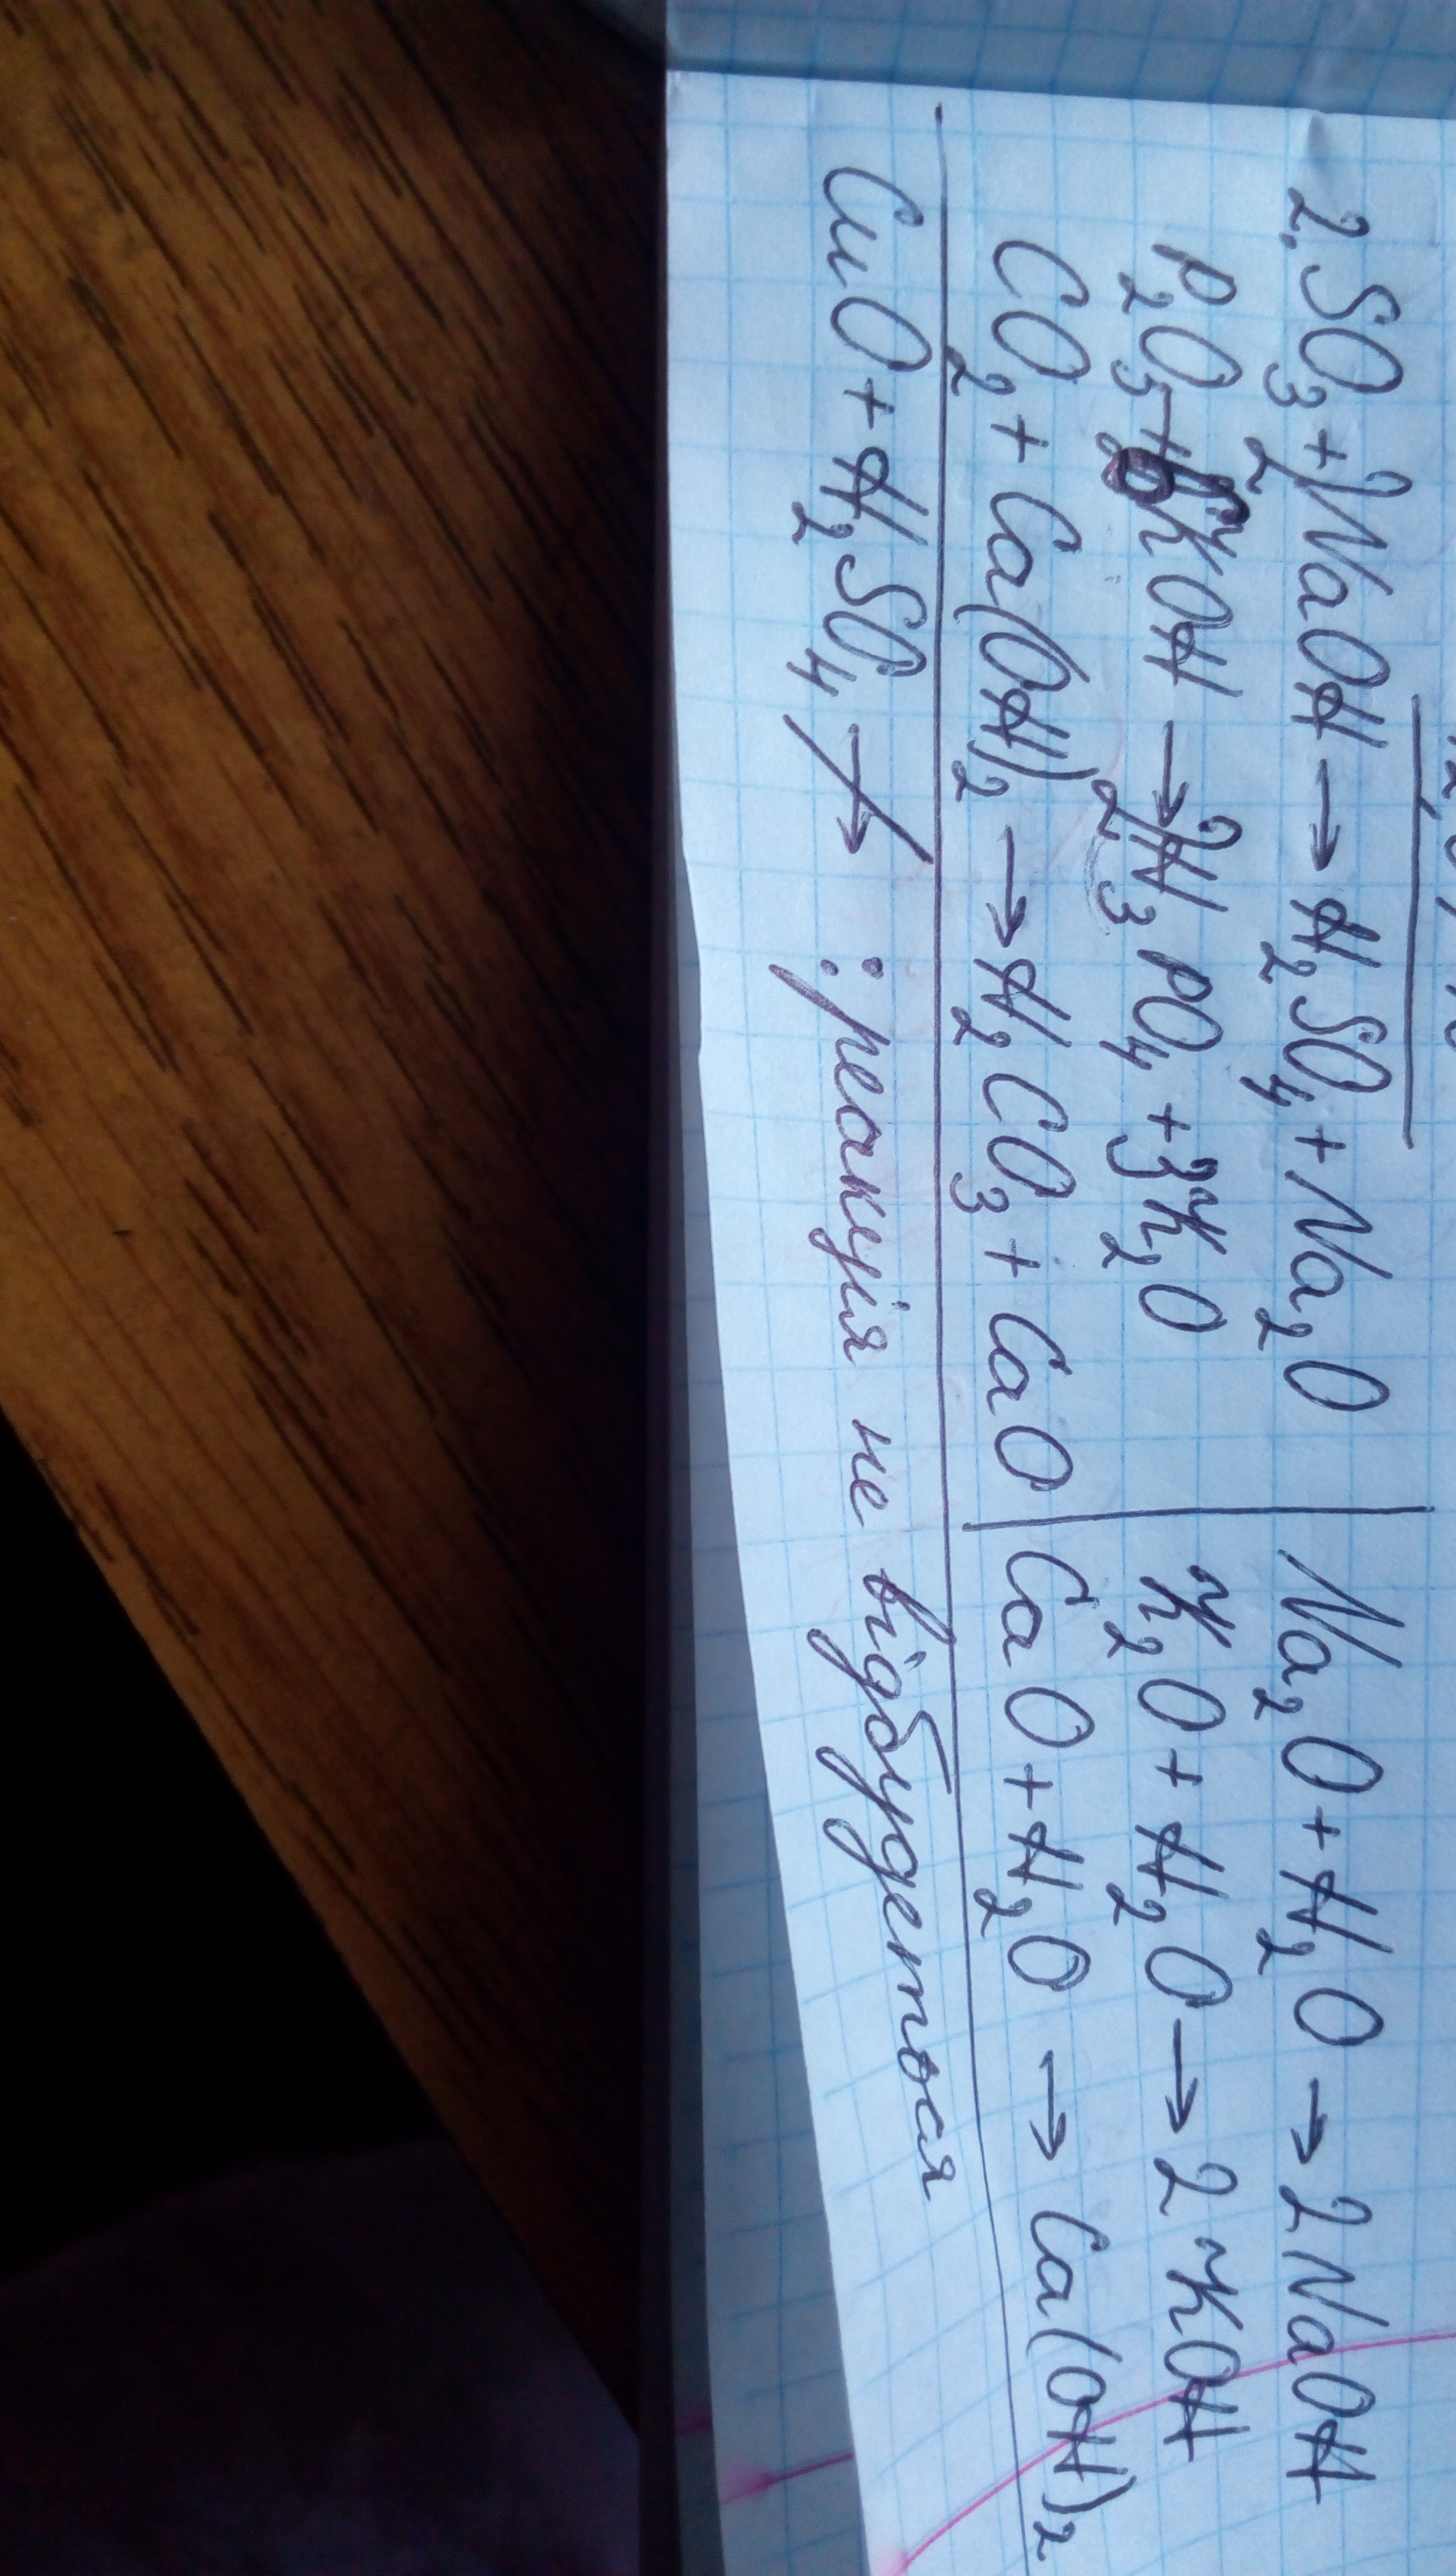 2. SO₃ + 2NaOH → H₂SO₄ + Na₂O | Na₂O + H₂O → 2NaOH
P₂O₅ + 6KOH → 2H₃PO₄ + 3K₂O | K₂O + H₂O → 2KOH
CO₂ + Ca(OH)₂ → H₂CO₃ + CaO | CaO + H₂O → Ca(OH)₂
CuO + H₂SO₄ ↛ : реакція не відбудеться